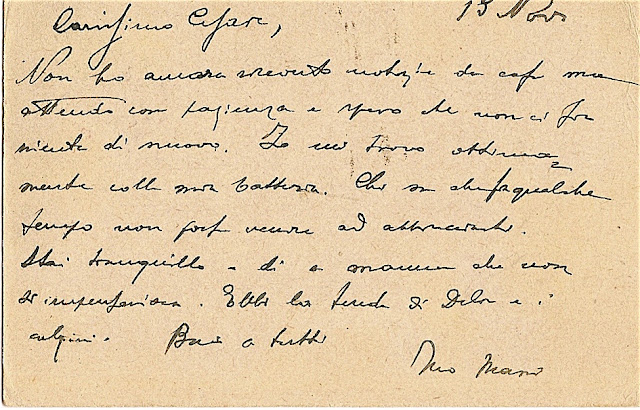 Carissimo Cesare, 13 Nov.
Non ho ancora ricevuto notizie da casa ma
attendo con pazienza e spero che non ci sia
niente di nuovo. Io mi trovo ottima=
mente colla mia batteria. Chi sa che fra qualche
tempo non possa venire ad abbracciarti.
Stai tranquillo e di a mamma che non
si impensierisca. Ebbi la tenda di e i
calzini. Baci a tutti
tuo Mario